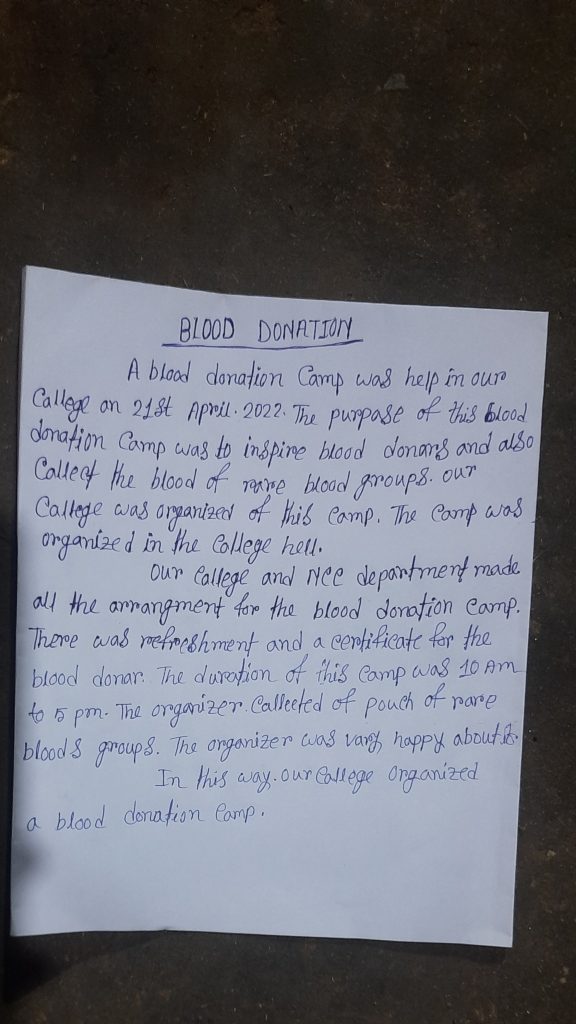 BLOOD DONATION
A blood donation Camp was help in our
College on 21st April. 2022. The purpose of this blood
donation Camp was to inspire blood donars and also
Collect the blood of rare blood groups. our
College was organized of this camp. The camp was
organized in the College hell.
Our College and NCC department made
all the arrangment for the blood donation camp.
There was refreshment and a certificate for the
blood donar. The duration of this camp was 10 Am
to 5 pm. The organizer. Collected of pouch of rare
bloods groups. The organizer was vary happy about it.
In this way. our College Organized
a blood donation Camp.